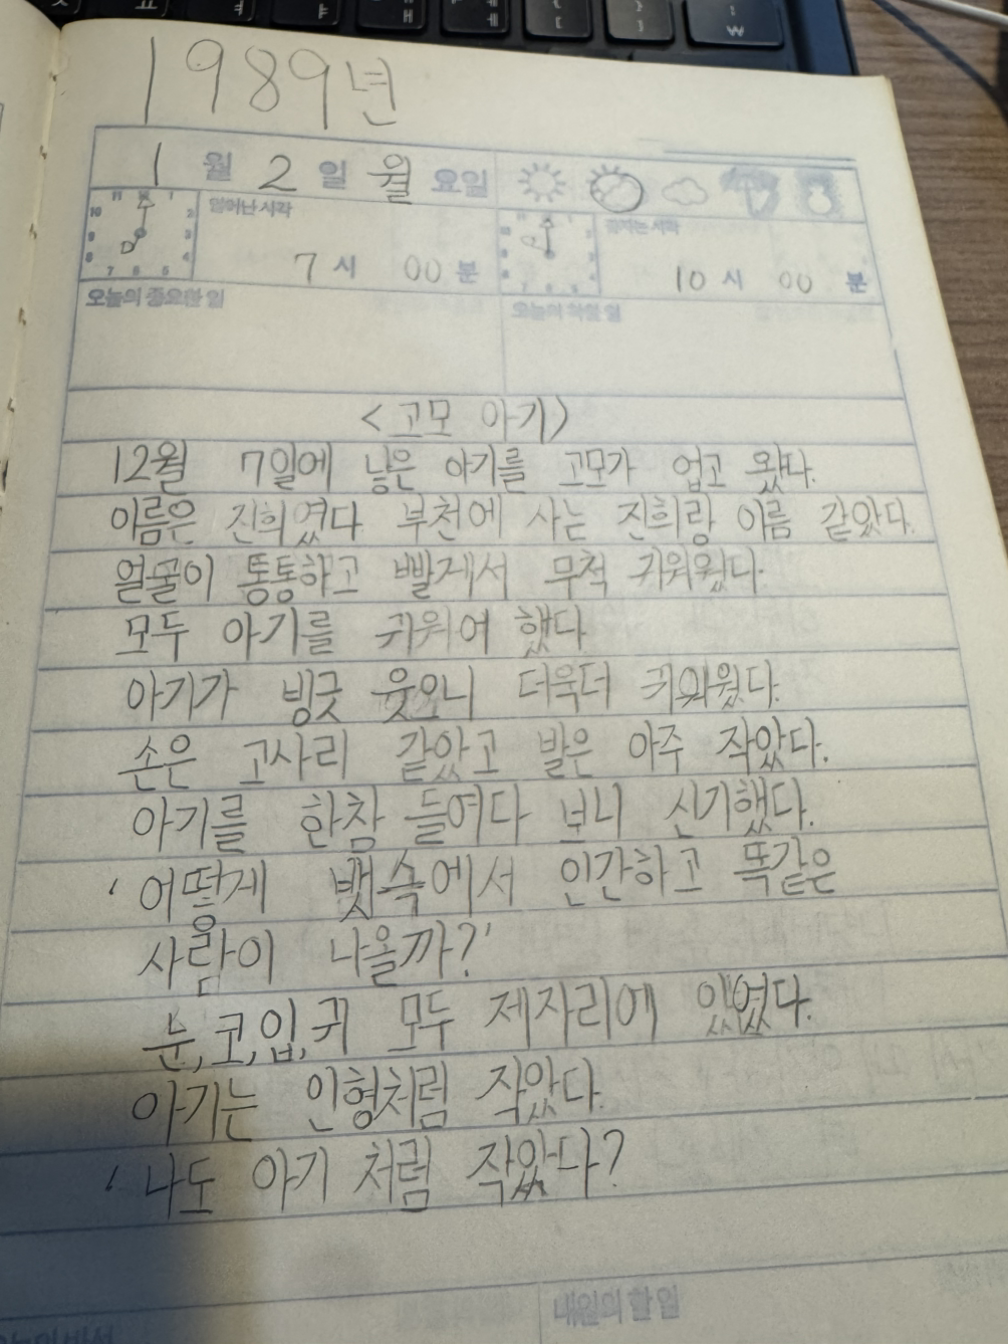 1989년
1 월 2 일 월 요일
일어난 시각
7 시 00 분
잠자는 시각
10 시 00 분
오늘의 중요한 일
오늘의 착한 일
<고모 아기>
12월 7일에 낳은 아기를 고모가 업고 왔다.
이름은 진희였다 부천에 사는 진희랑 이름 같았다.
얼굴이 통통하고 빨게서 무척 귀워웠다.
모두 아기를 귀워여 했다
아기가 빙긋 웃으니 더욱더 귀워웠다.
손은 고사리 같았고 발은 아주 작았다.
아기를 한참 들여다 보니 신기했다.
'어떻게 뱃속에서 인간하고 똑같은
사람이 나올까?'
눈,코,입,귀 모두 제자리에 있였다.
아기는 인형처럼 작았다.
'나도 아기 처럼 작았다?
내일의 할 일